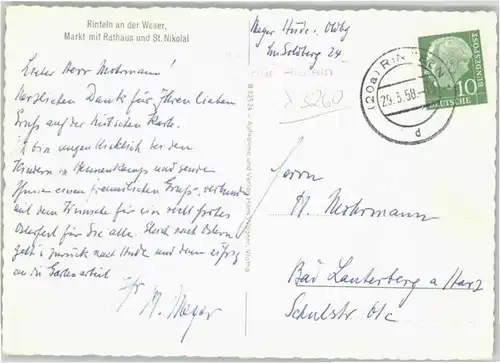 Rinteln an der Weser,
Markt mit Rathaus und St. Nikolai
Lieber Herr Mohrmann!
Herzlichen Dank für Ihren lieben
Gruß auf der hübschen Karte.
bin augenblicklich bei den
Kindern in und sende
Ihnen einen freundlichen Gruß, verbunden
mit dem Wunsche für ein recht frohes
Osterfest für Sie alle. Gleich nach Ostern
geht's zurück nach Hude und dann eifrig
an die Gartenarbeit
Ihr H. Meyer
Meyer Hude i. Oldbg
Im Sohlberg 24
λ 3260
(20a) RINTELN
29.3.58
d
10
DEUTSCHE
BUNDESPOST
Herrn
H. Mohrmann
Bad Lauterberg a Harz
Schulstr